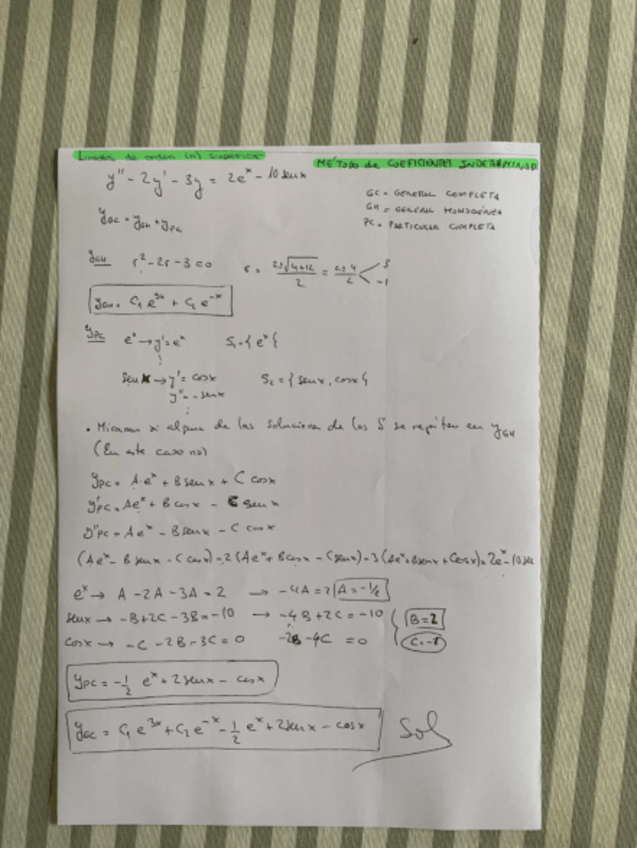 Lineales de orden (n) superior
MÉTODO de COEFICIENTES INDETERMINAD
y'' - 2y' - 3y = 2e^x - 10 senx
GC = GENERAL COMPLETA
GH = GENERAL HOMOGÉNEA
PC = PARTICULAR COMPLETA
y_GC = y_GH + y_PC
y_GH r² - 2r - 3 = 0 r = (2±√(4+12))/2 = (2±4)/2 < 3 -1
y_GH = C₁ e^3x + C₂ e^-x
y_PC e^x → y' = e^x S₁ = { e^x }
senx → y' = cosx S₂ = { senx, cosx }
y'' = - senx
• Miramos si alguna de las soluciones de los S se repiten en y_GH
(En este caso no)
y_PC = A·e^x + B senx + C cosx
y'_PC = Ae^x + B cosx - C senx
y''_PC = Ae^x - B senx - C cosx
(Ae^x - B senx - C cosx) - 2(Ae^x + B cosx - C senx) - 3(Ae^x + B senx + C cosx) = 2e^x - 10 sen
e^x → A - 2A - 3A = 2 → -4A = 2 A = -1/2
senx → -B + 2C - 3B = -10 → -4B + 2C = -10 B = 2
cosx → -C - 2B - 3C = 0 -2B - 4C = 0 C = -1
y_PC = -1/2 e^x + 2 senx - cosx
y_GC = C₁ e^3x + C₂ e^-x - 1/2 e^x + 2 senx - cosx Sol